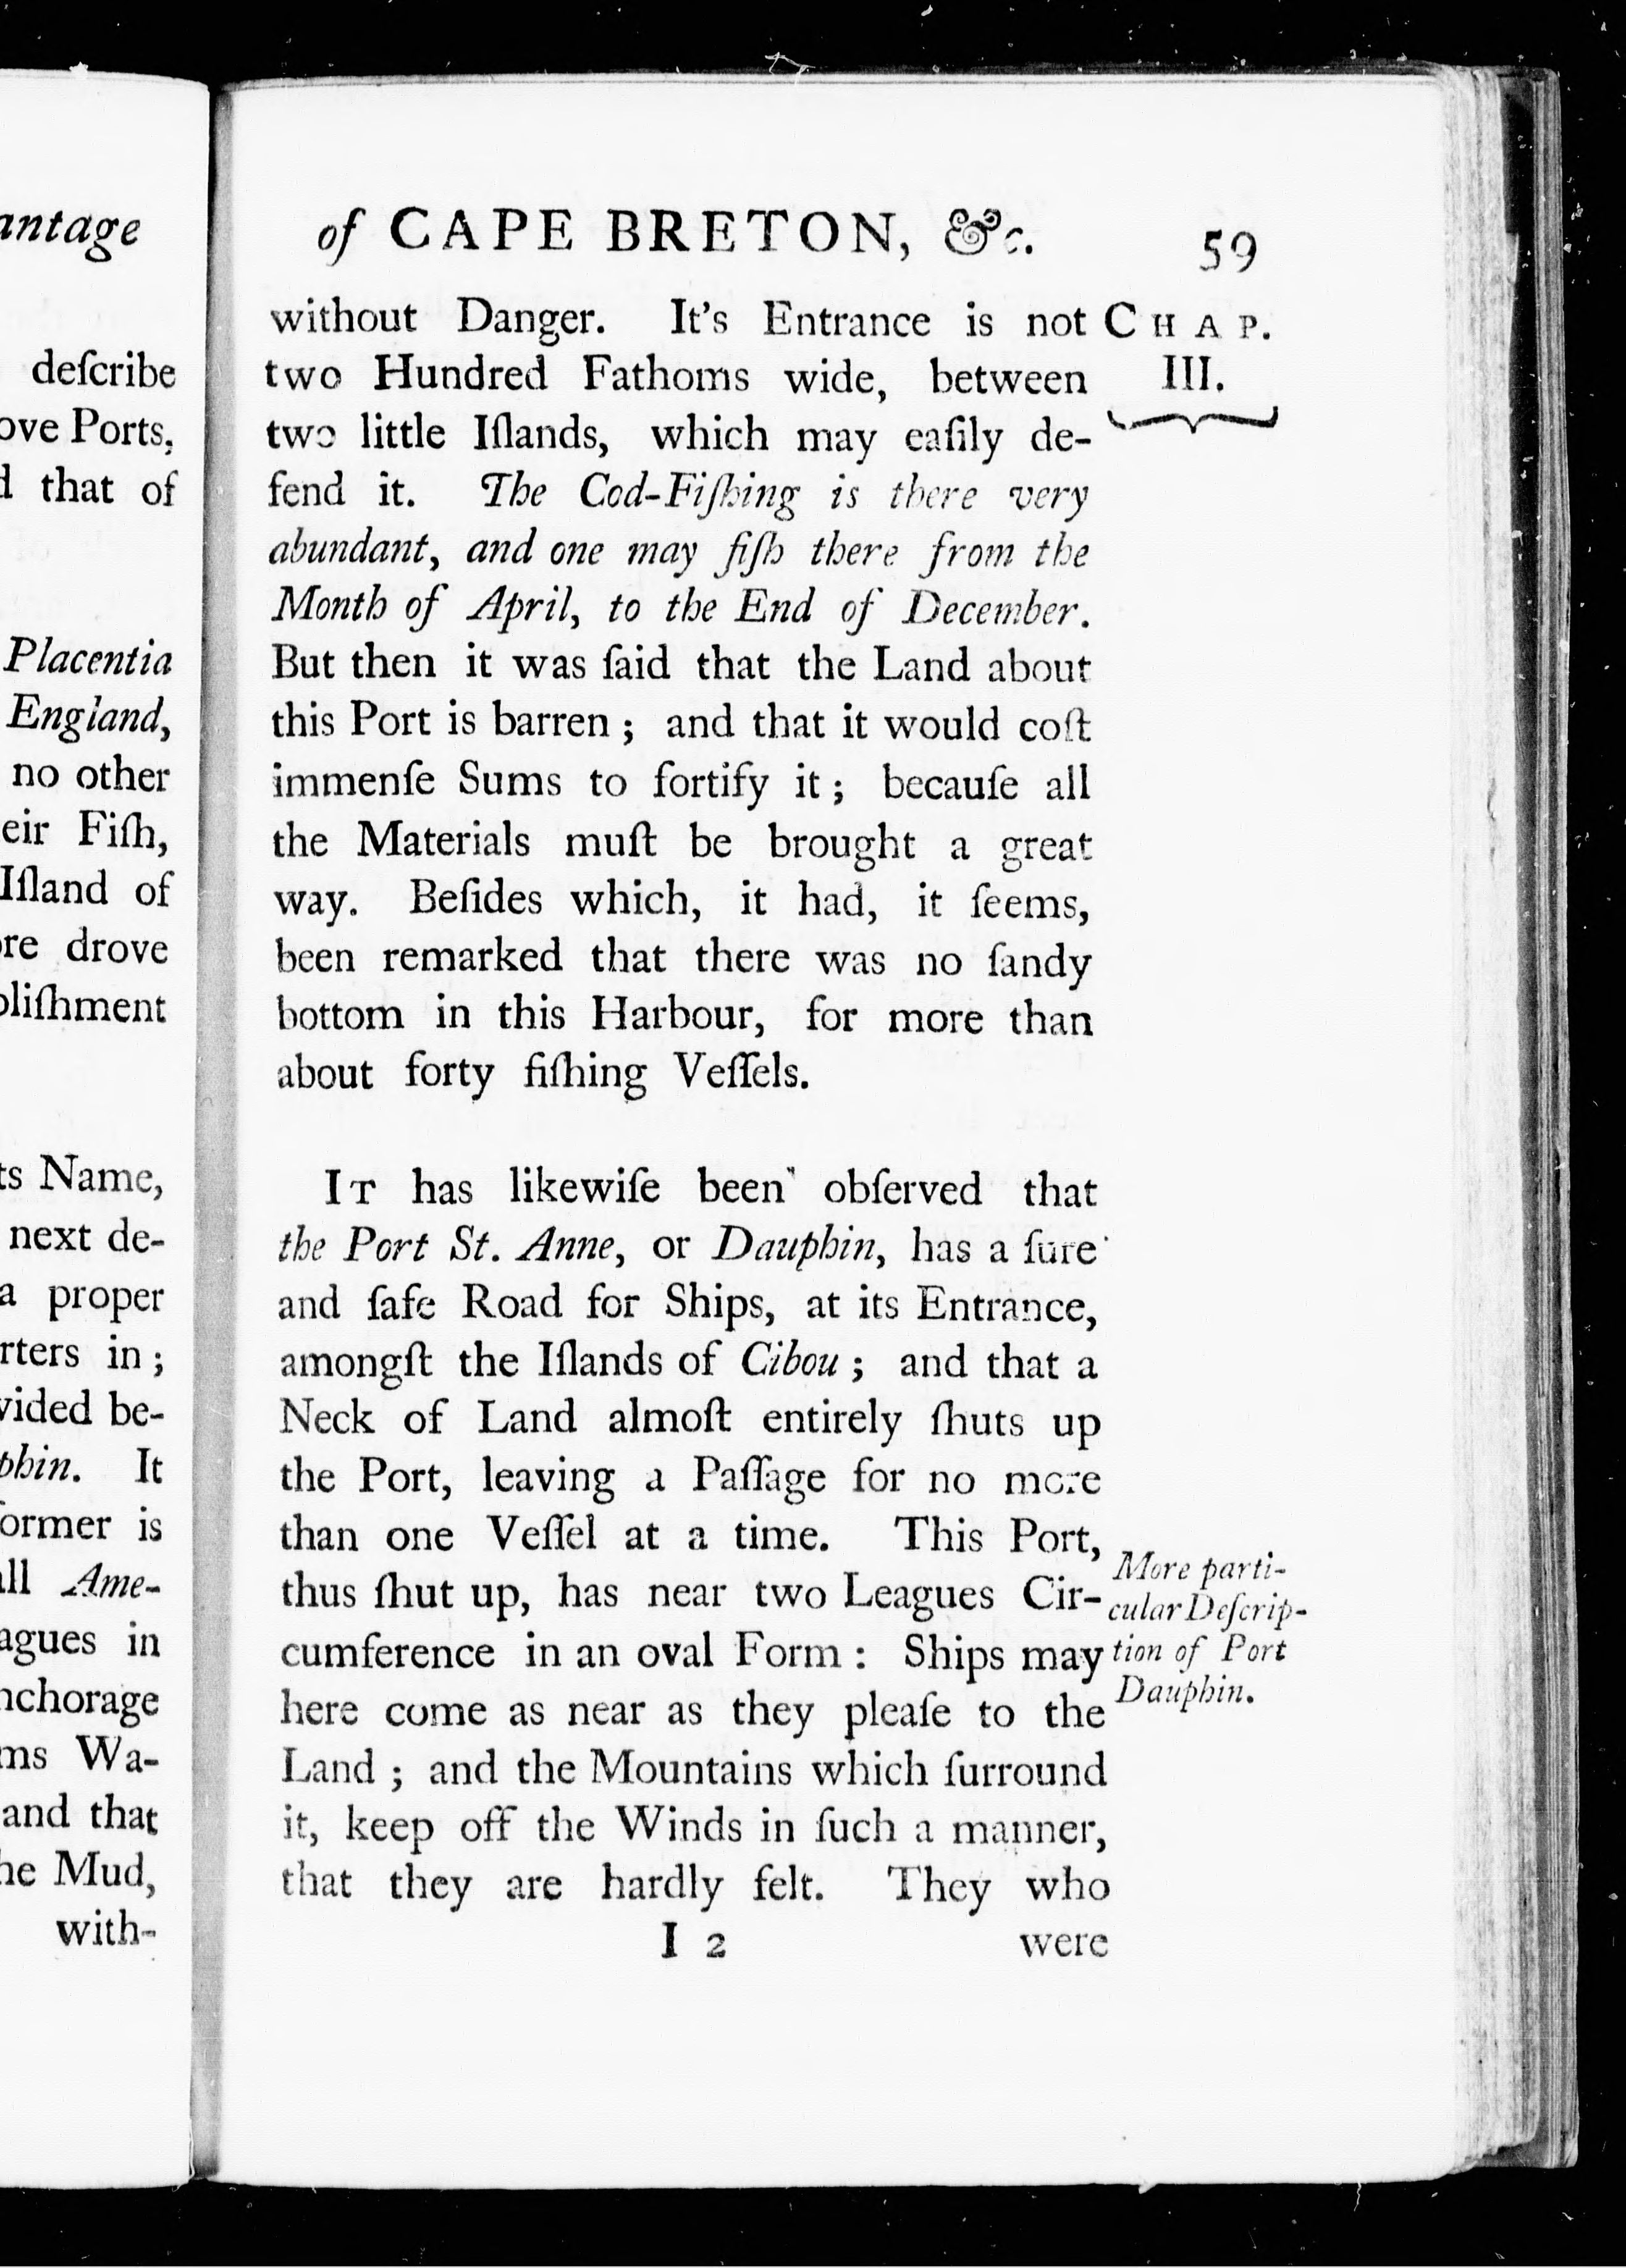 antage
describe
Ports,
that of
Placentia
England,
no other
Fiſh,
Iſland of
drove
Name,
next de-
a proper
in;
be-
It
is
Ame-
in
Wa-
and that
Mud,
with-
of CAPE BRETON, &c. 59
CHAP.
III.
without Danger. It's Entrance is not
two Hundred Fathoms wide, between
two little Iſlands, which may eaſily de-
fend it. The Cod-Fiſhing is there very
abundant, and one may fiſh there from the
Month of April, to the End of December.
But then it was ſaid that the Land about
this Port is barren; and that it would coſt
immenſe Sums to fortify it; becauſe all
the Materials muſt be brought a great
way. Beſides which, it had, it ſeems,
been remarked that there was no ſandy
bottom in this Harbour, for more than
about forty fiſhing Veſſels.
IT has likewiſe been obſerved that
the Port St. Anne, or Dauphin, has a ſure
and ſafe Road for Ships, at its Entrance,
amongſt the Iſlands of Cibou; and that a
Neck of Land almoſt entirely ſhuts up
the Port, leaving a Paſſage for no more
than one Veſſel at a time. This Port,
thus ſhut up, has near two Leagues Cir-
cumference in an oval Form: Ships may
here come as near as they pleaſe to the
Land; and the Mountains which ſurround
it, keep off the Winds in ſuch a manner,
that they are hardly felt. They who
More parti-
cular Deſcrip-
tion of Port
Dauphin.
I 2 were